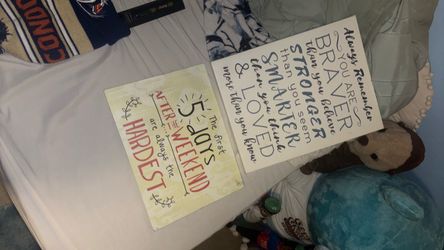 Always Remember
YOU ARE
BRAVER
than you believe
STRONGER
than you seem
SMARTER
than you think
& LOVED
more than you know
The first
5 DAYS
AFTER THE
WEEKEND
are always the
HARDEST